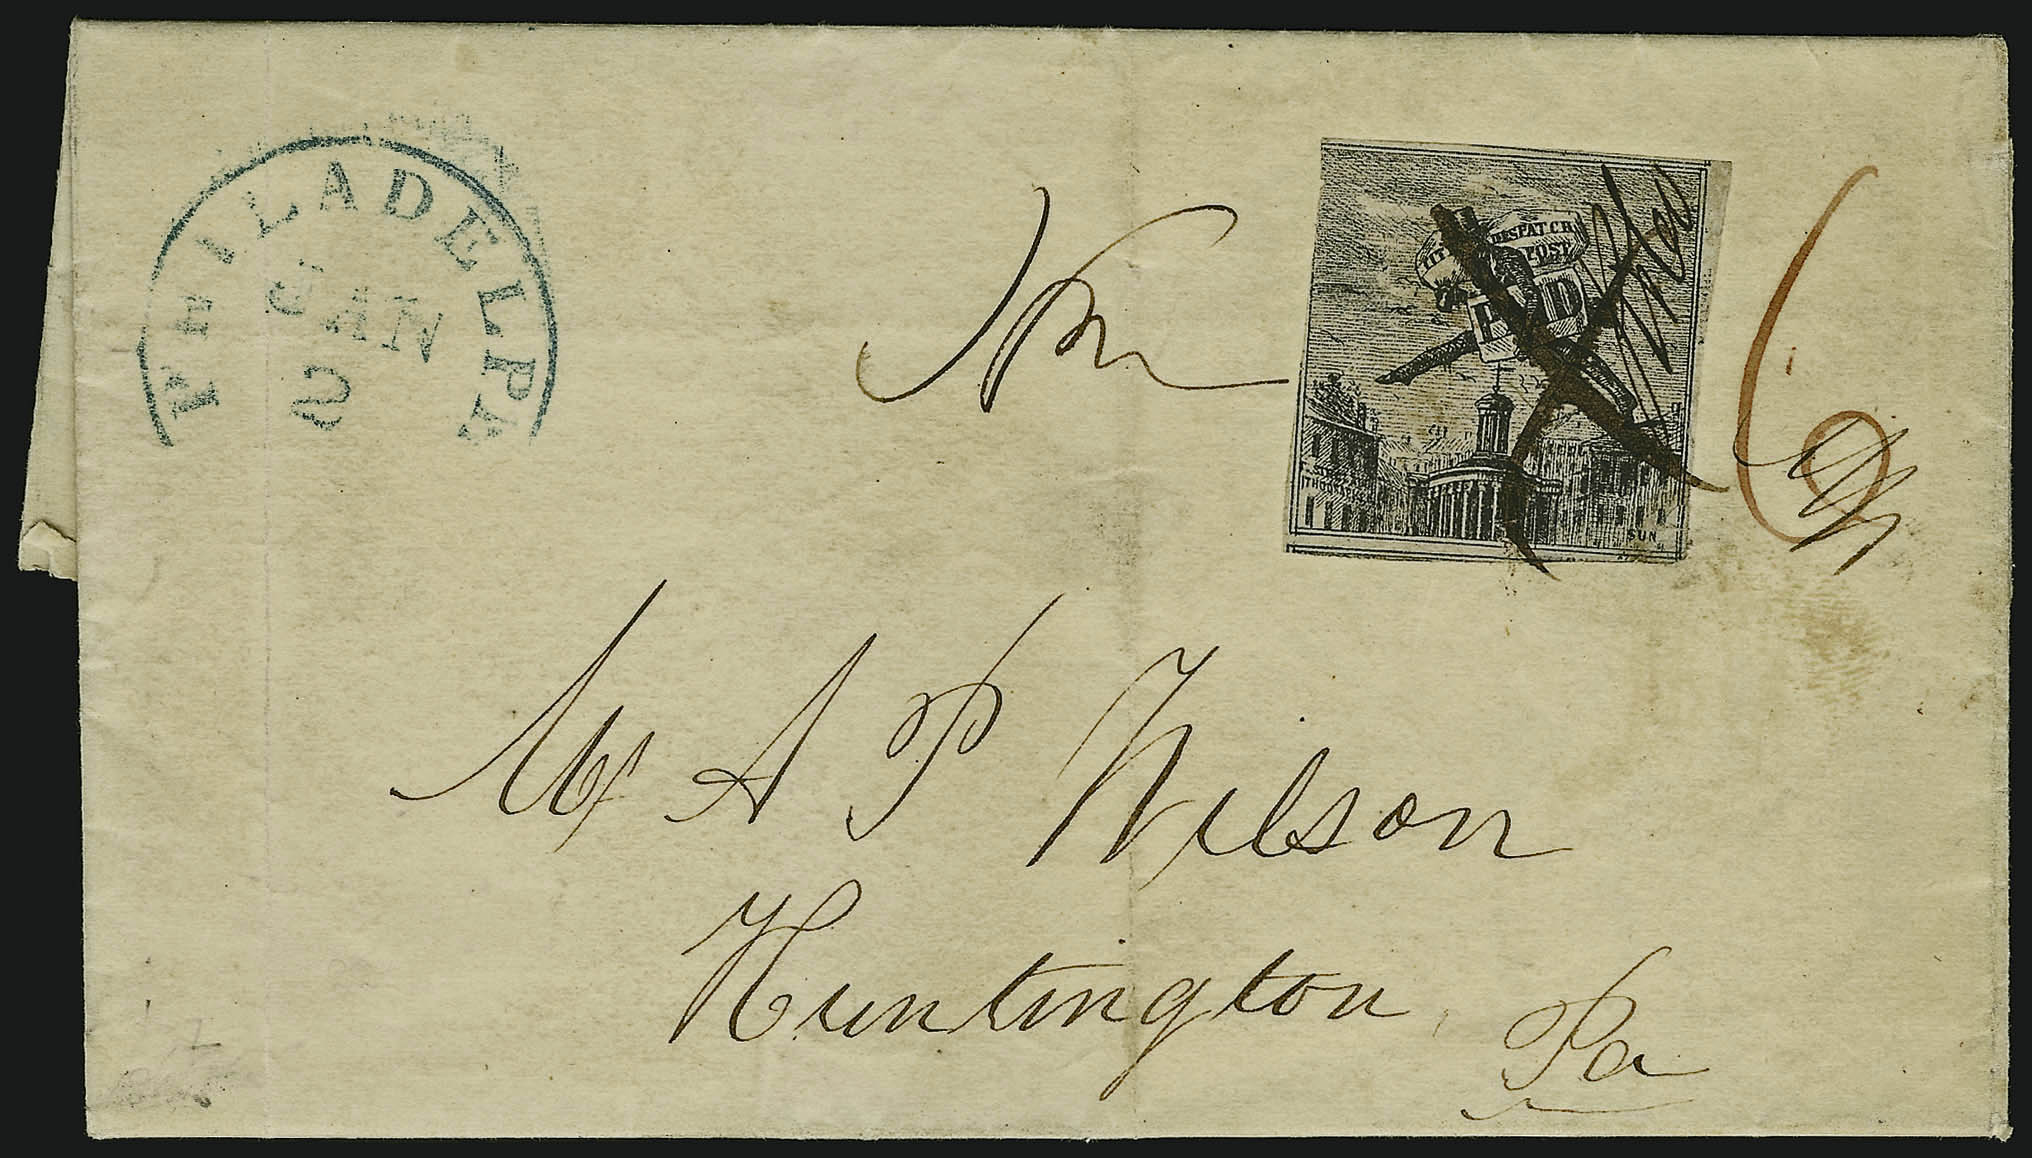 PHILADELPH
JAN
2
DESPATCH
POST
PAID
6
SUN
Mr A P Wilson
Huntington Pa